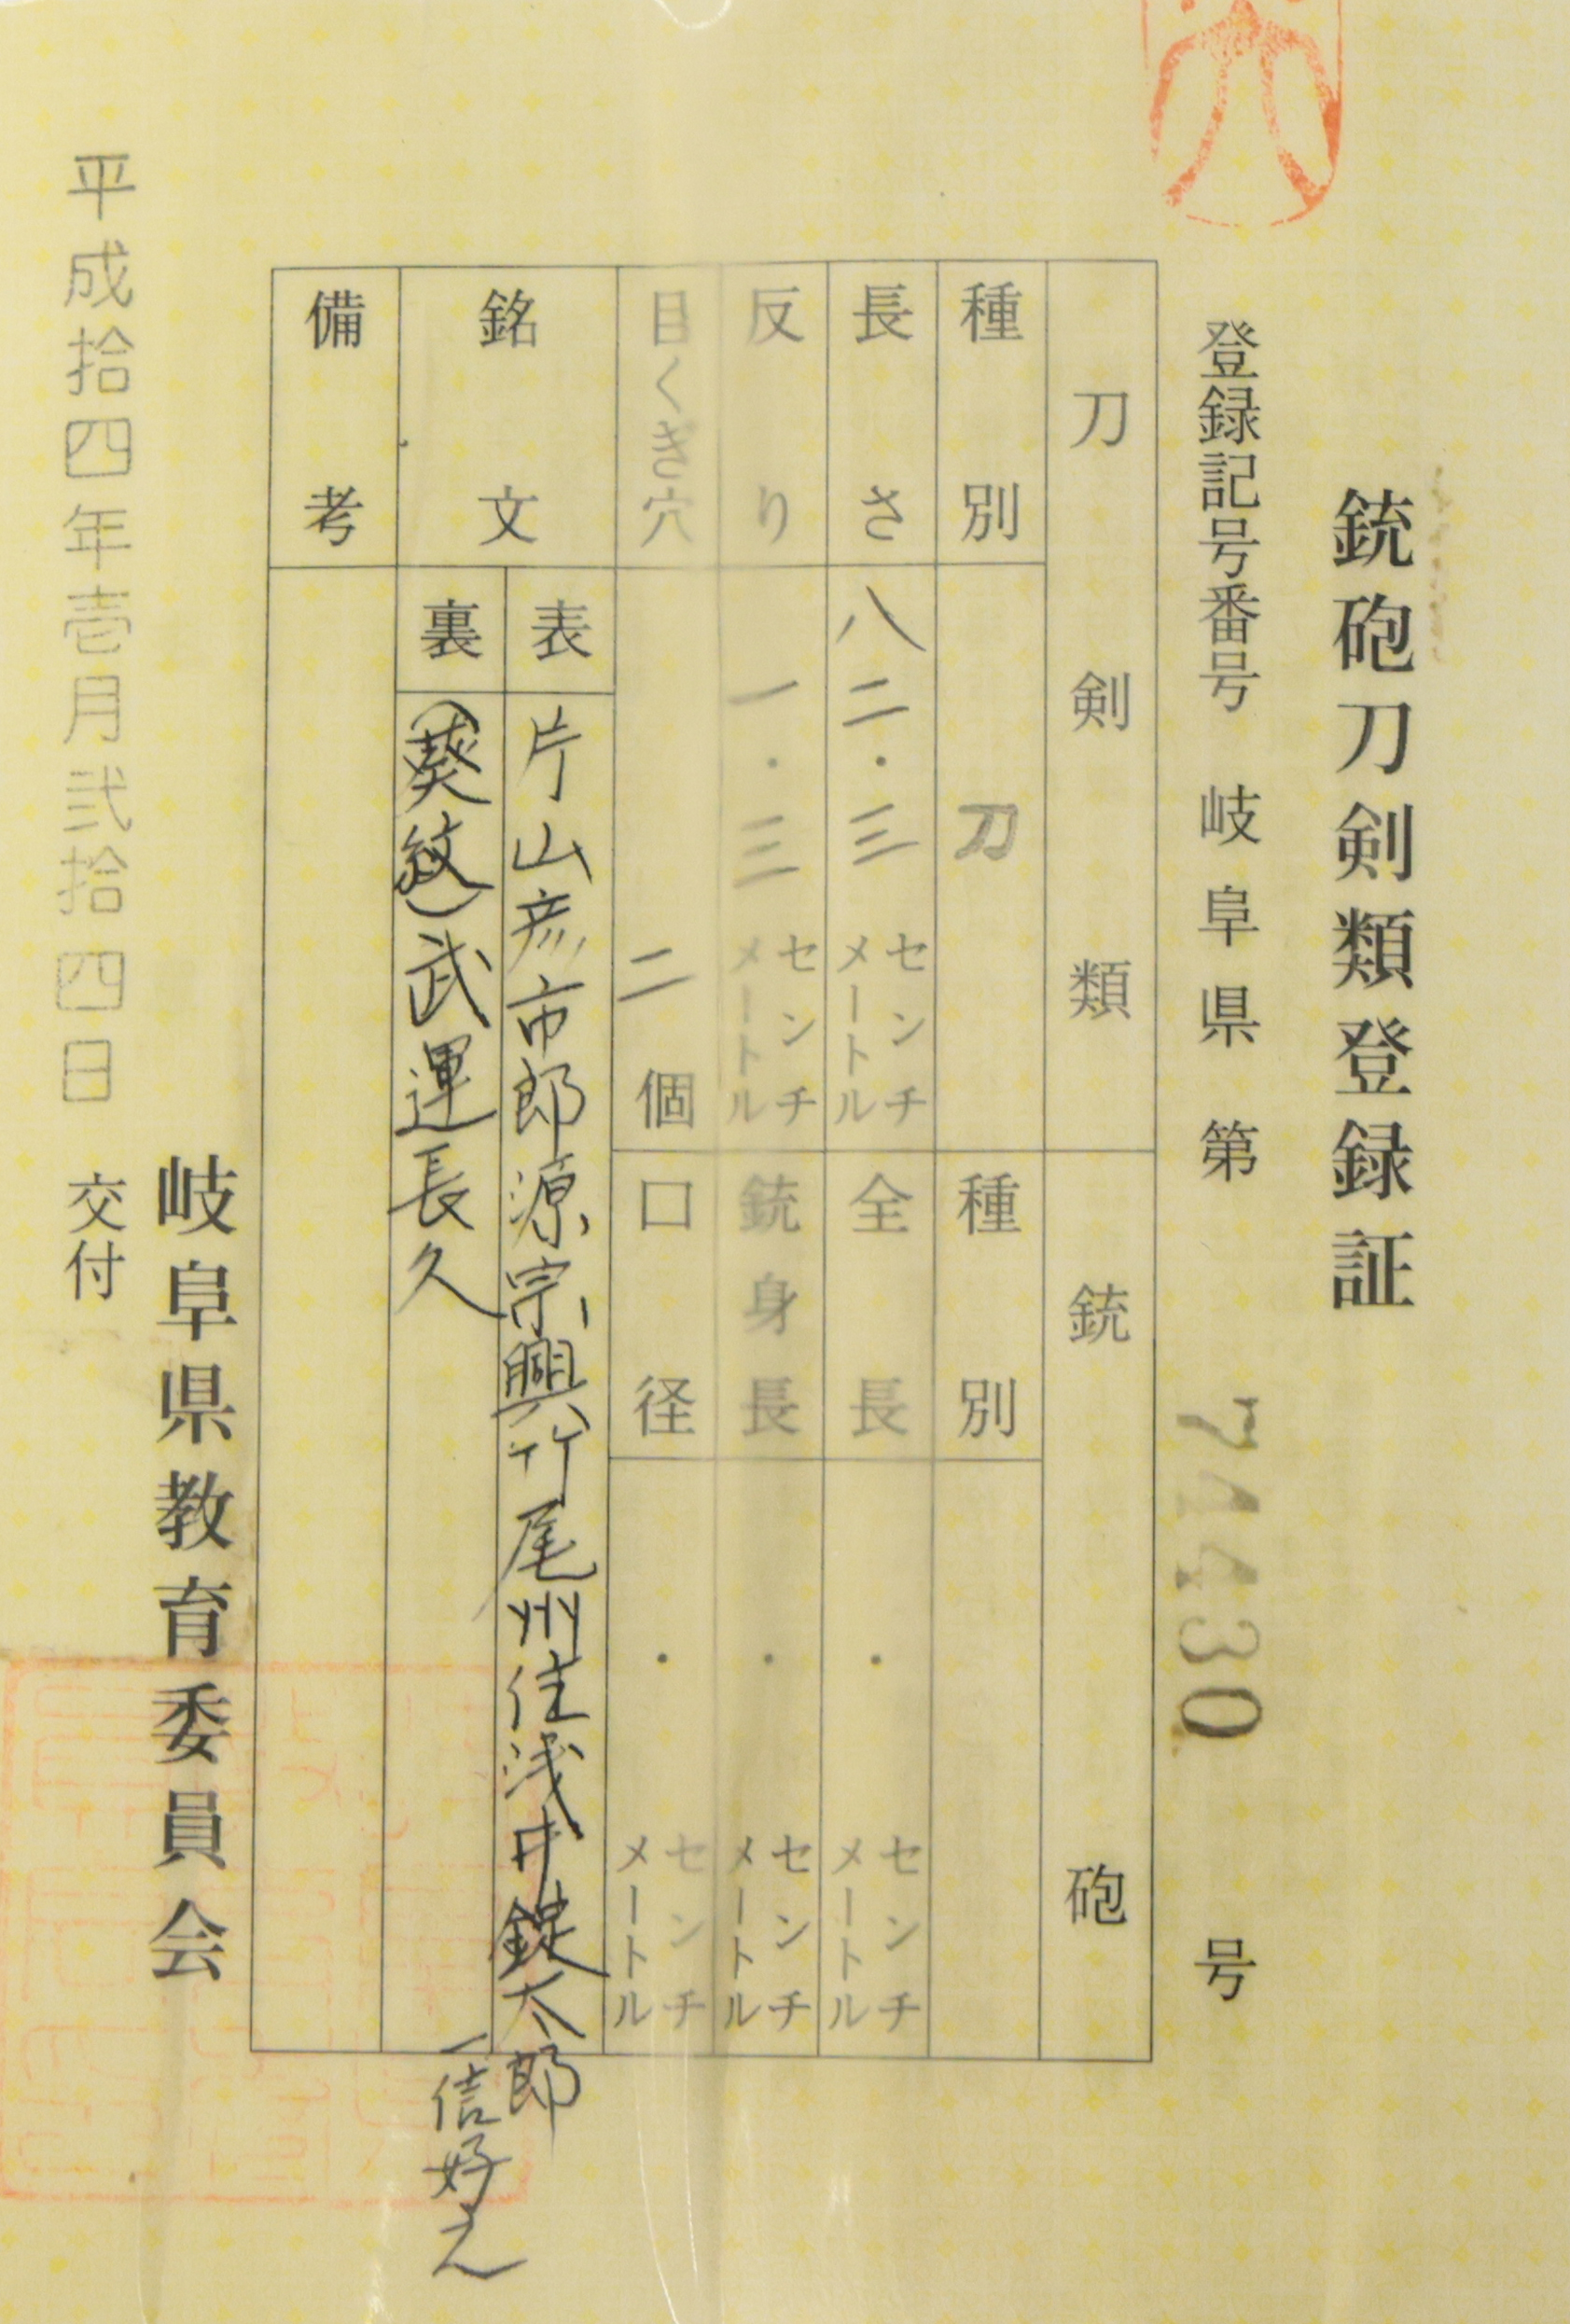 銃砲刀剣類登録証
登録記号番号 岐阜県 第 74430 号
刀剣類 銃砲
種別 刀 種別
長さ 八二・三 センチメートル 全長 ・ センチメートル
反り 一・三 センチメートル 銃身長 ・ センチメートル
目くぎ穴 二個 口径 ・ センチメートル
銘文 表 片山彦市郎源宗興 尾州住浅井錠太郎
一信好之
裏 (葵紋)武運長久
備考
岐阜県教育委員会
平成拾四年壱月弐拾四日 交付